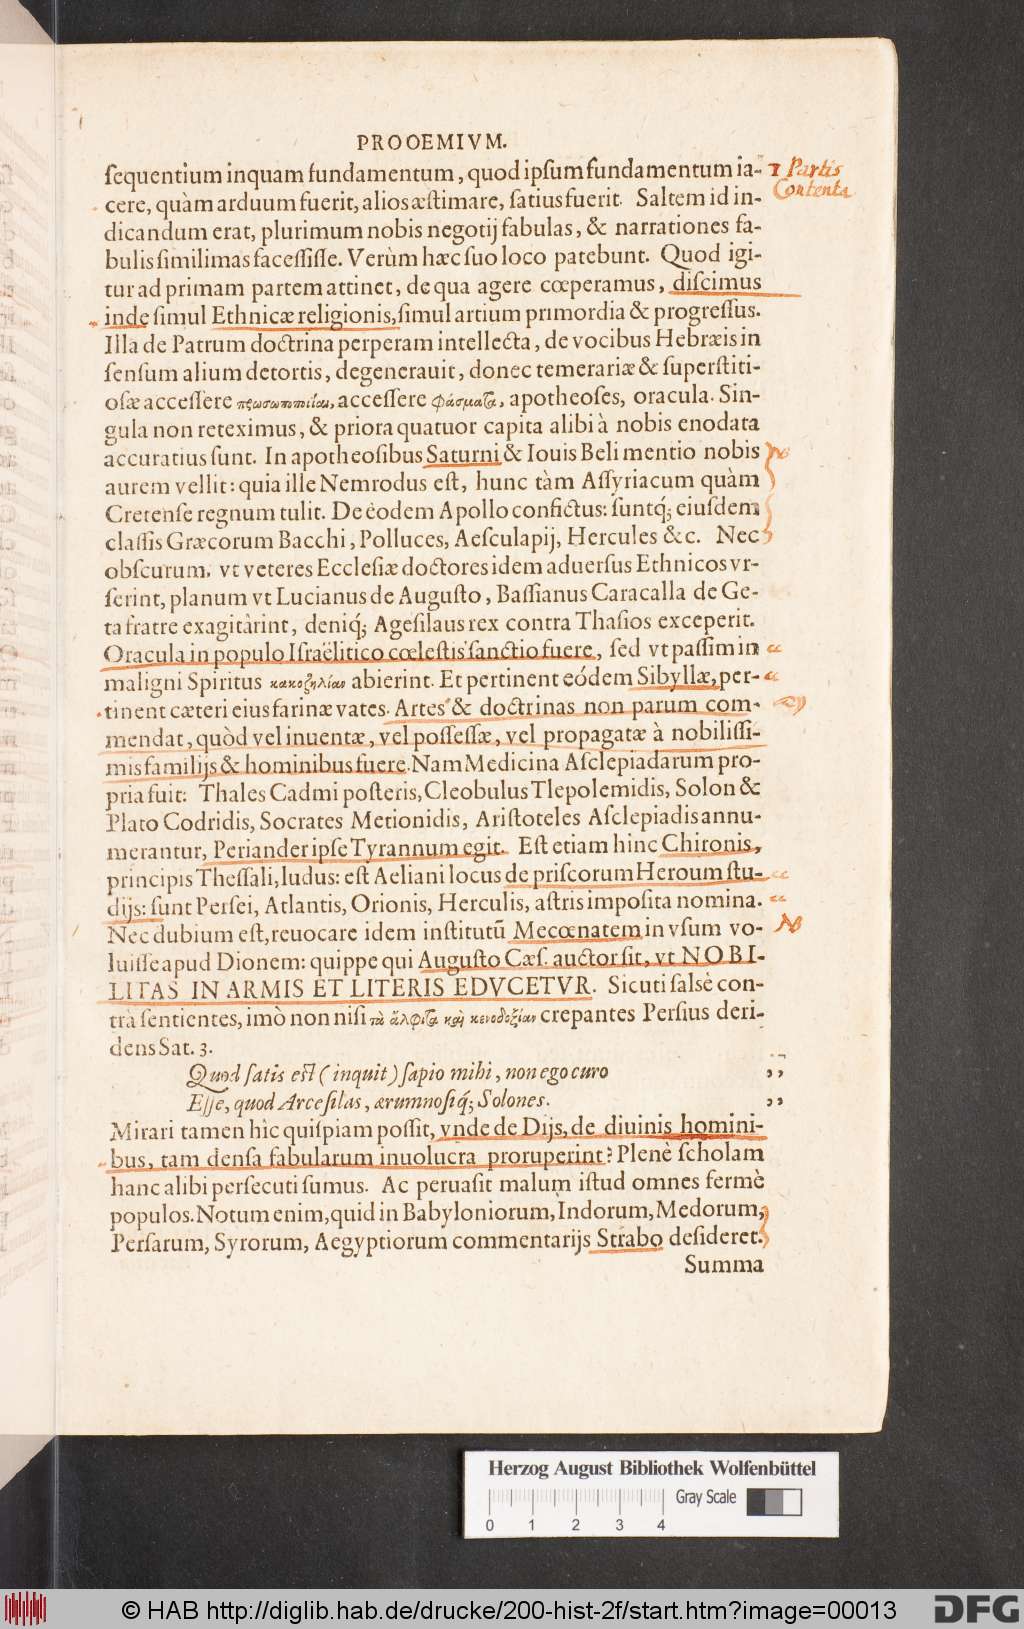 PROOEMIVM.
ſequentium inquam fundamentum, quod ipſum fundamentum ia-
cere, quàm arduum fuerit, alios æſtimare, ſatius fuerit. Saltem id in-
dicandum erat, plurimum nobis negotij fabulas, & narrationes fa-
bulis ſimilimas faceſſiſſe. Verùm hæc ſuo loco patebunt. Quod igi-
tur ad primam partem attinet, de qua agere cœperamus, diſcimus
inde ſimul Ethnicæ religionis, ſimul artium primordia & progreſſus.
Illa de Patrum doctrina perperam intellecta, de vocibus Hebræis in
ſenſum alium detortis, degenerauit, donec temerariæ & ſuperſtiti-
oſæ acceſſere acceſſere φάσματα, apotheoſes, oracula. Sin-
gula non reteximus, & priora quatuor capita alibi à nobis enodata
accuratius ſunt. In apotheoſibus Saturni & Iouis Beli mentio nobis
aurem vellit: quia ille Nemrodus eſt, hunc tàm Aſſyriacum quàm
Cretenſe regnum tulit. De eodem Apollo confictus: ſuntq́; eiuſdem
claſſis Græcorum Bacchi, Polluces, Aeſculapij, Hercules &c. Nec
obſcurum, vt veteres Eccleſiæ doctores idem aduerſus Ethnicos vr-
ſerint, planum vt Lucianus de Auguſto, Baſſianus Caracalla de Ge-
ta fratre exagitàrint, deniq́; Ageſilaus rex contra Thaſios exceperit.
Oracula in populo Iſraëlitico cœleſtis ſanctio fuere, ſed vt paſſim in
maligni Spiritus κακοζηλίαν abierint. Et pertinent eódem Sibyllæ, per-
tinent cæteri eius farinæ vates. Artes & doctrinas non parum com-
mendat, quòd vel inuentæ, vel poſſeſſæ, vel propagatæ à nobiliſſi-
mis familijs & hominibus fuere. Nam Medicina Aſclepiadarum pro-
pria fuit: Thales Cadmi poſteris, Cleobulus Tlepolemidis, Solon &
Plato Codridis, Socrates Metionidis, Ariſtoteles Aſclepiadis annu-
merantur, Periander ipſe Tyrannum egit. Eſt etiam hinc Chironis,
principis Theſſali, ludus: eſt Aeliani locus de priſcorum Heroum ſtu-
dijs: ſunt Perſei, Atlantis, Orionis, Herculis, aſtris impoſita nomina.
Nec dubium eſt, reuocare idem inſtitutũ Mecœnatem in vſum vo-
luiſſe apud Dionem: quippe qui Auguſto Cæſ. auctor ſit, vt NOBI-
LITAS IN ARMIS ET LITERIS EDVCETVR. Sicuti falsè con-
trà ſentientes, imò non niſi τὰ ἄλφιτα καὶ κενοδοξίαν crepantes Perſius deri-
dens Sat. 3.
Quod ſatis eſt (inquit) ſapio mihi, non ego curo ,,
Eſſe, quod Arceſilas, ærumnoſiq́; Solones. ,,
Mirari tamen hîc quiſpiam poſſit, vnde de Dijs, de diuinis homini-
bus, tam denſa fabularum inuolucra proruperint? Plenè ſcholam
hanc alibi perſecuti ſumus. Ac peruaſit malum iſtud omnes fermè
populos. Notum enim, quid in Babyloniorum, Indorum, Medorum,
Perſarum, Syrorum, Aegyptiorum commentarijs Strabo deſideret.
Summa
1 Partis
Contenta
NB
Herzog August Bibliothek Wolfenbüttel
Gray Scale
0 1 2 3 4
© HAB http://diglib.hab.de/drucke/200-hist-2f/start.htm?image=00013
DFG